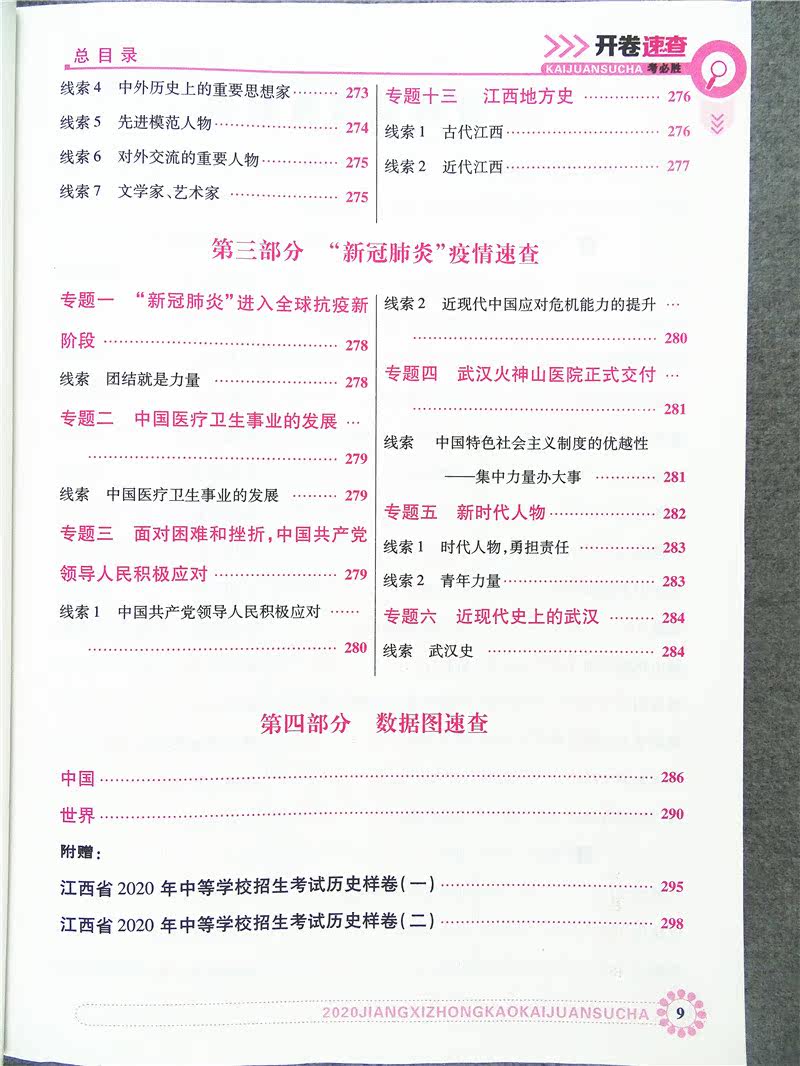 总目录
开卷速查
KAIJUANSUCHA 考必胜
线索4 中外历史上的重要思想家………273
线索5 先进模范人物……………………274
线索6 对外交流的重要人物……………275
线索7 文学家、艺术家 …………………275
专题十三 江西地方史 ……………276
线索1 古代江西…………………………276
线索2 近代江西…………………………277
第三部分 “新冠肺炎”疫情速查
专题一 “新冠肺炎”进入全球抗疫新
阶段 ………………………………………278
线索 团结就是力量 ……………………278
专题二 中国医疗卫生事业的发展 …
…………………………………………279
线索 中国医疗卫生事业的发展 ………279
专题三 面对困难和挫折，中国共产党
领导人民积极应对 ……………………279
线索1 中国共产党领导人民积极应对 ……
…………………………………………280
线索2 近现代中国应对危机能力的提升 …
…………………………………………280
专题四 武汉火神山医院正式交付 …
…………………………………………281
线索 中国特色社会主义制度的优越性
——集中力量办大事 …………281
专题五 新时代人物…………………282
线索1 时代人物，勇担责任 ……………283
线索2 青年力量…………………………283
专题六 近现代史上的武汉 ………284
线索 武汉史 ……………………………284
第四部分 数据图速查
中国……………………………………………………286
世界……………………………………………………290
附赠：
江西省2020年中等学校招生考试历史样卷（一）……………………295
江西省2020年中等学校招生考试历史样卷（二）……………………298
2020JIANGXIZHONGKAOKAIJUANSUCHA 9